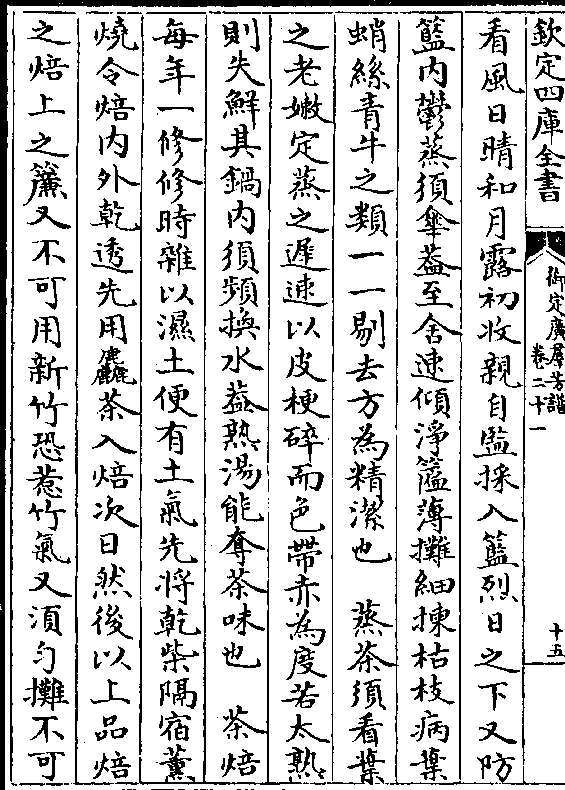 欽定四庫全書
御定廣群芳譜
卷二十一
十五
看風日晴和月露初收親自監採入籃烈日之下又防
籃内鬱蒸須傘葢至舎速傾淨籚薄攤細揀枯枝病葉
蛸絲青牛之類一一剔去方為精潔也　蒸茶須看葉
之老嫩定蒸之遲速以皮梗碎而色帶赤為度若太熟
則失鮮其鍋内須頻換水葢熟湯能奪茶味也　茶焙
每年一修修時雜以濕土便有土氣先將乾柴隔宿薫
燒令焙内外乾透先用麤茶入焙次日然後以上品焙
之焙上之簾又不可用新竹恐惹竹氣又須匀攤不可